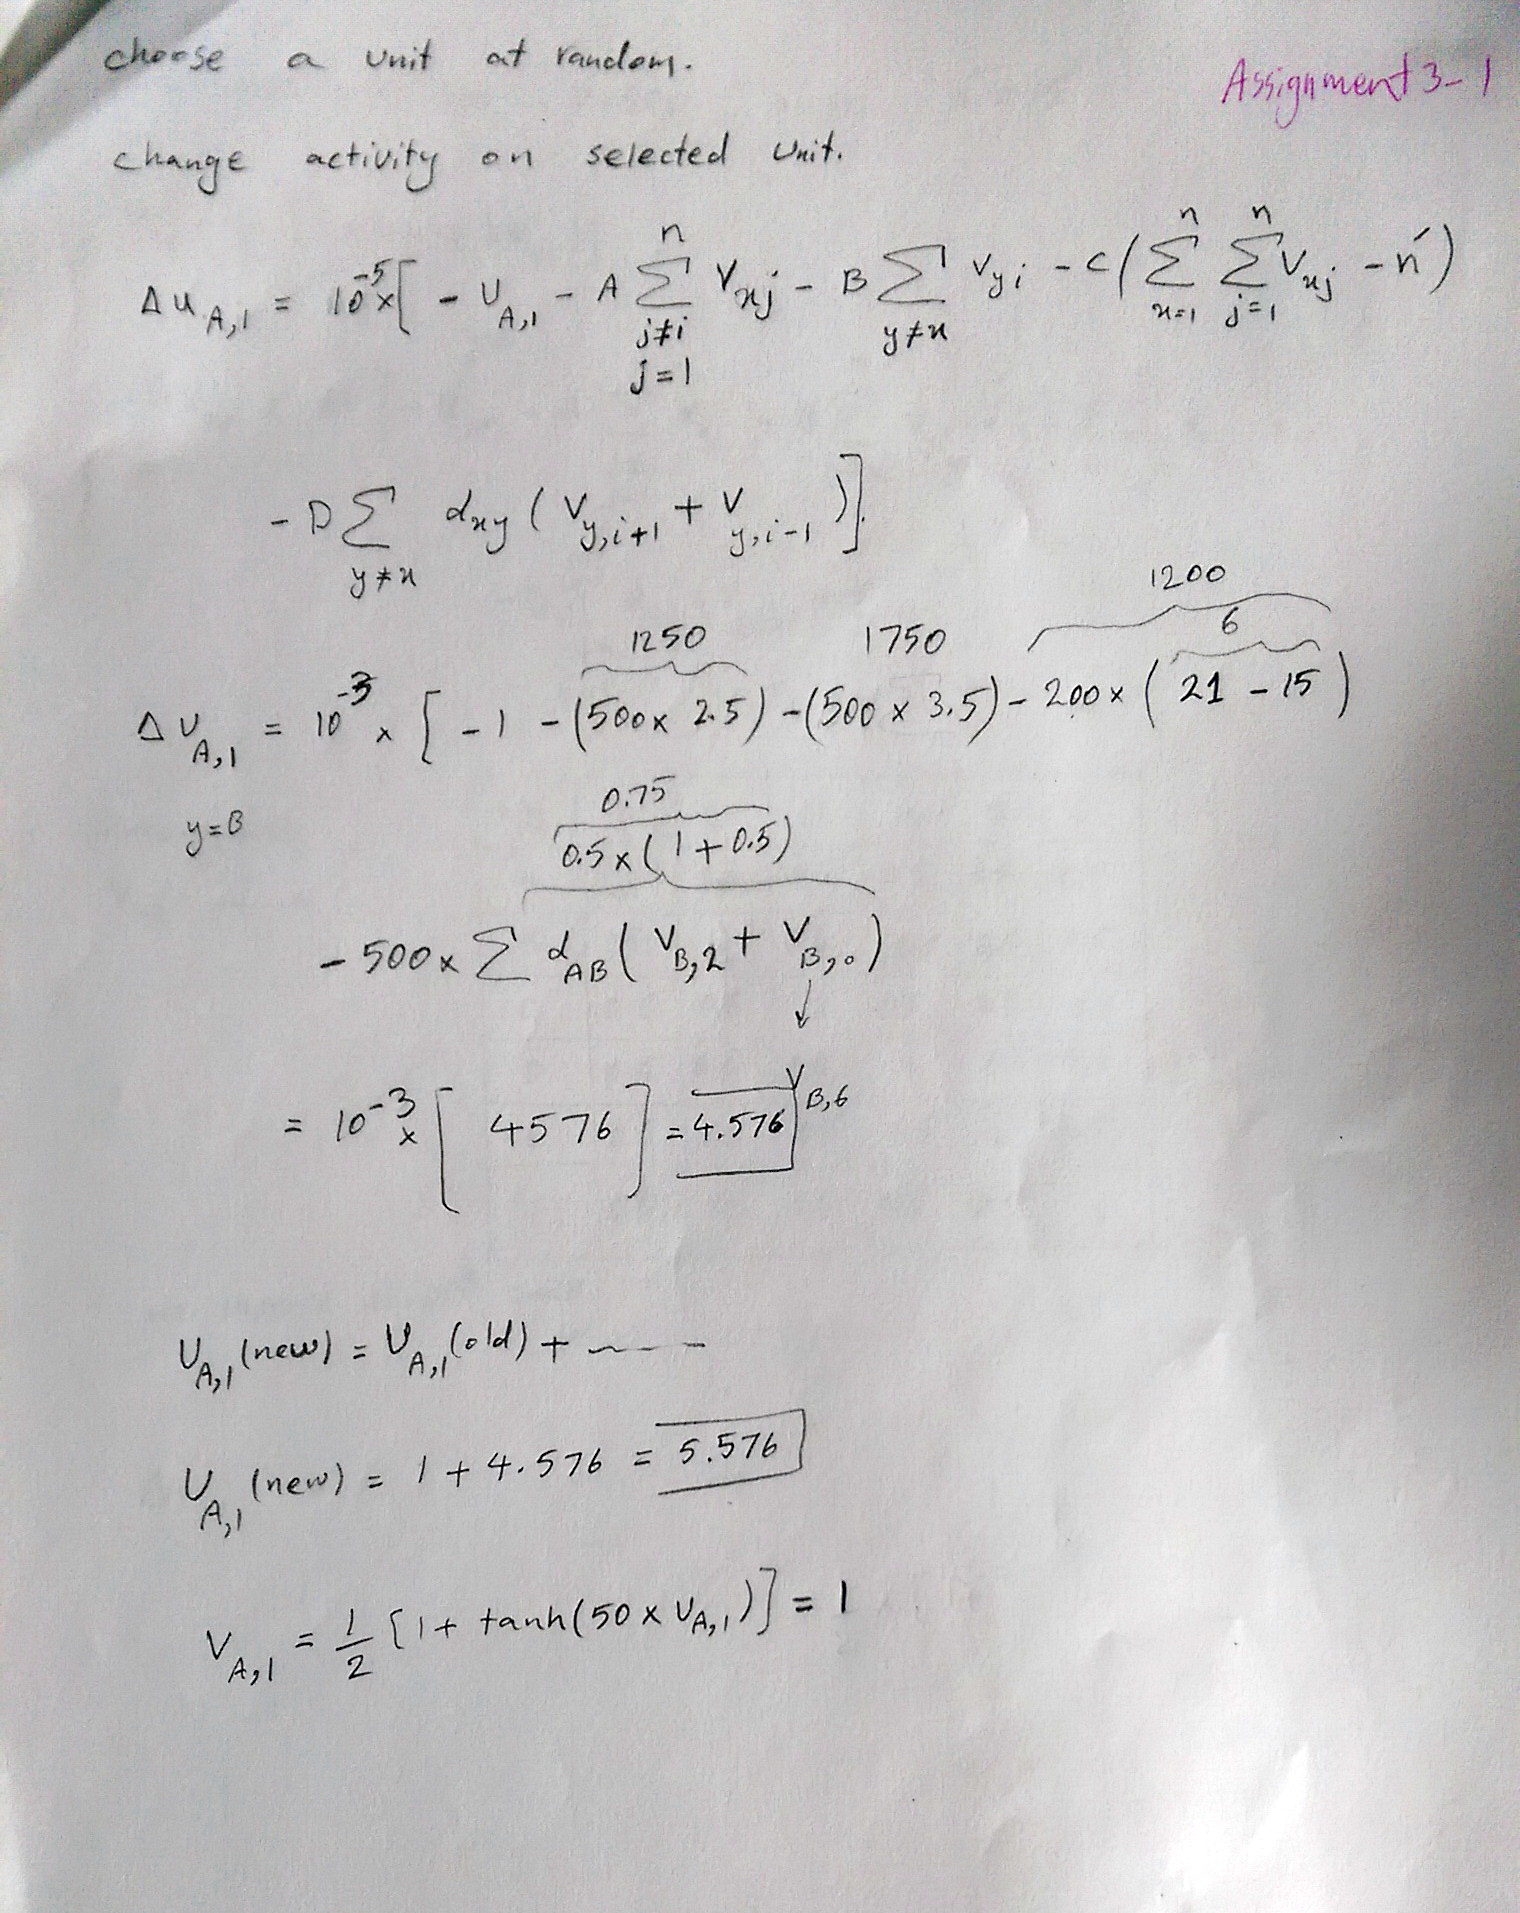 choose a unit at random.
Assignment 3-1
change activity on selected unit.
Δu_{A,1} = 10^{-5} × [ - U_{A,1} - A \sum_{j≠i, j=1}^{n} V_{xj} - B \sum_{y≠x} V_{yi} - C ( \sum_{x=1}^{n} \sum_{j=1}^{n} V_{xj} - n′ )
- D \sum_{y≠x} d_{xy} ( V_{y,i+1} + V_{y,i-1} ) ].
1200
1250 1750 6
ΔU_{A,1} = 10^{-3} × [ - 1 - (500 × 2.5) - (500 × 3.5) - 200 × ( 21 - 15 )
0.75
y=B
0.5 × ( 1 + 0.5 )
- 500 × \sum d_{AB} ( V_{B,2} + V_{B,0} )
↓
V_{B,6}
= 10^{-3} × [ 4576 ] = 4.576
U_{A,1} (new) = U_{A,1} (old) + -----
U_{A,1} (new) = 1 + 4.576 = 5.576
V_{A,1} = \frac{1}{2} [ 1 + tanh(50 × U_{A,1}) ] = 1